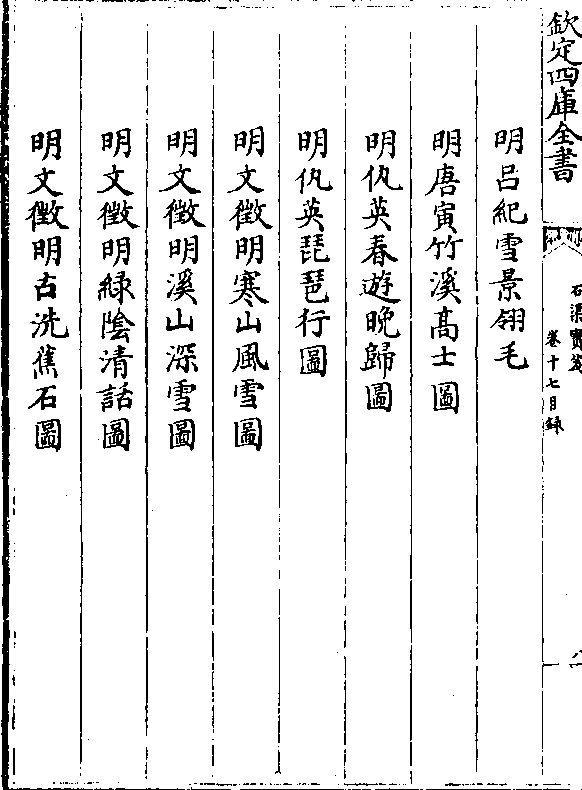 欽定四庫全書
石渠寶笈
卷十七目錄
八
明呂紀雪景翎毛
明唐寅竹溪高士圖
明仇英春遊晚歸圖
明仇英琵琶行圖
明文徵明寒山風雪圖
明文徵明溪山深雪圖
明文徵明綠陰清話圖
明文徵明古洗蕉石圖